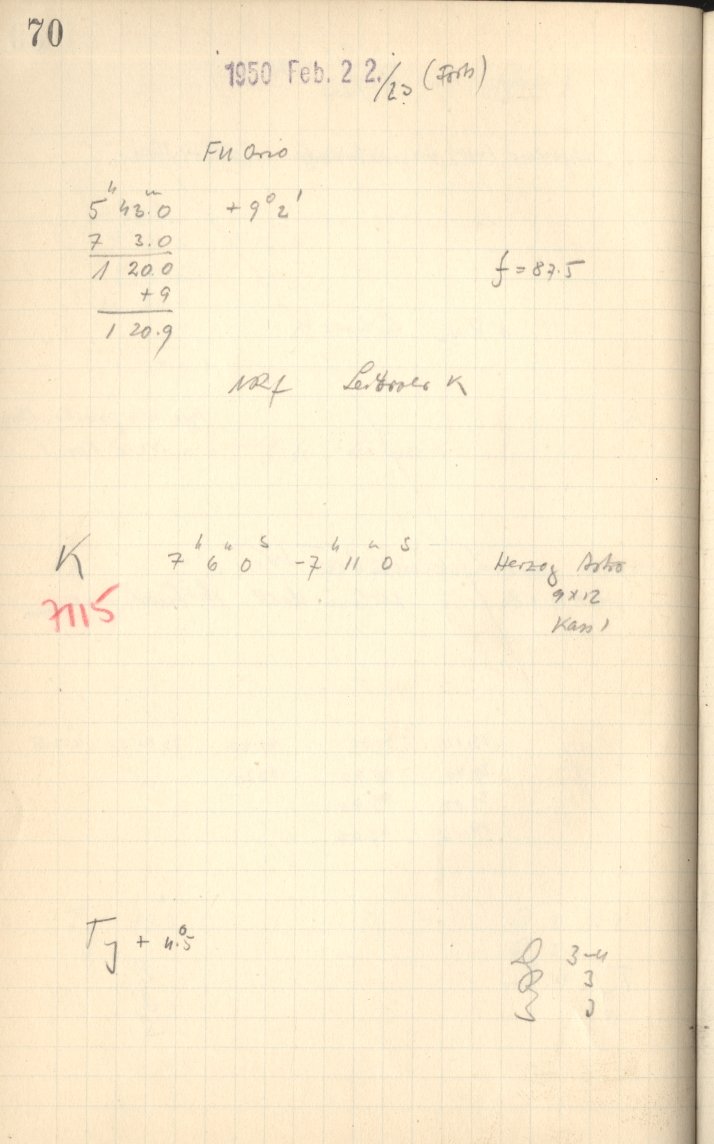 70
1950 Feb. 22./23 (Forts)
FU Orio
5ʰ 43.0ᵐ +9° 2'
7 3.0
1 20.0
+9
1 20.9
f = 87.5
K
K 7ʰ 6ᵐ 0ˢ -7ʰ 11ᵐ 0ˢ Herzog Astro
9x12
Kass 1
7115
T + 4.5°
3-4
3
3